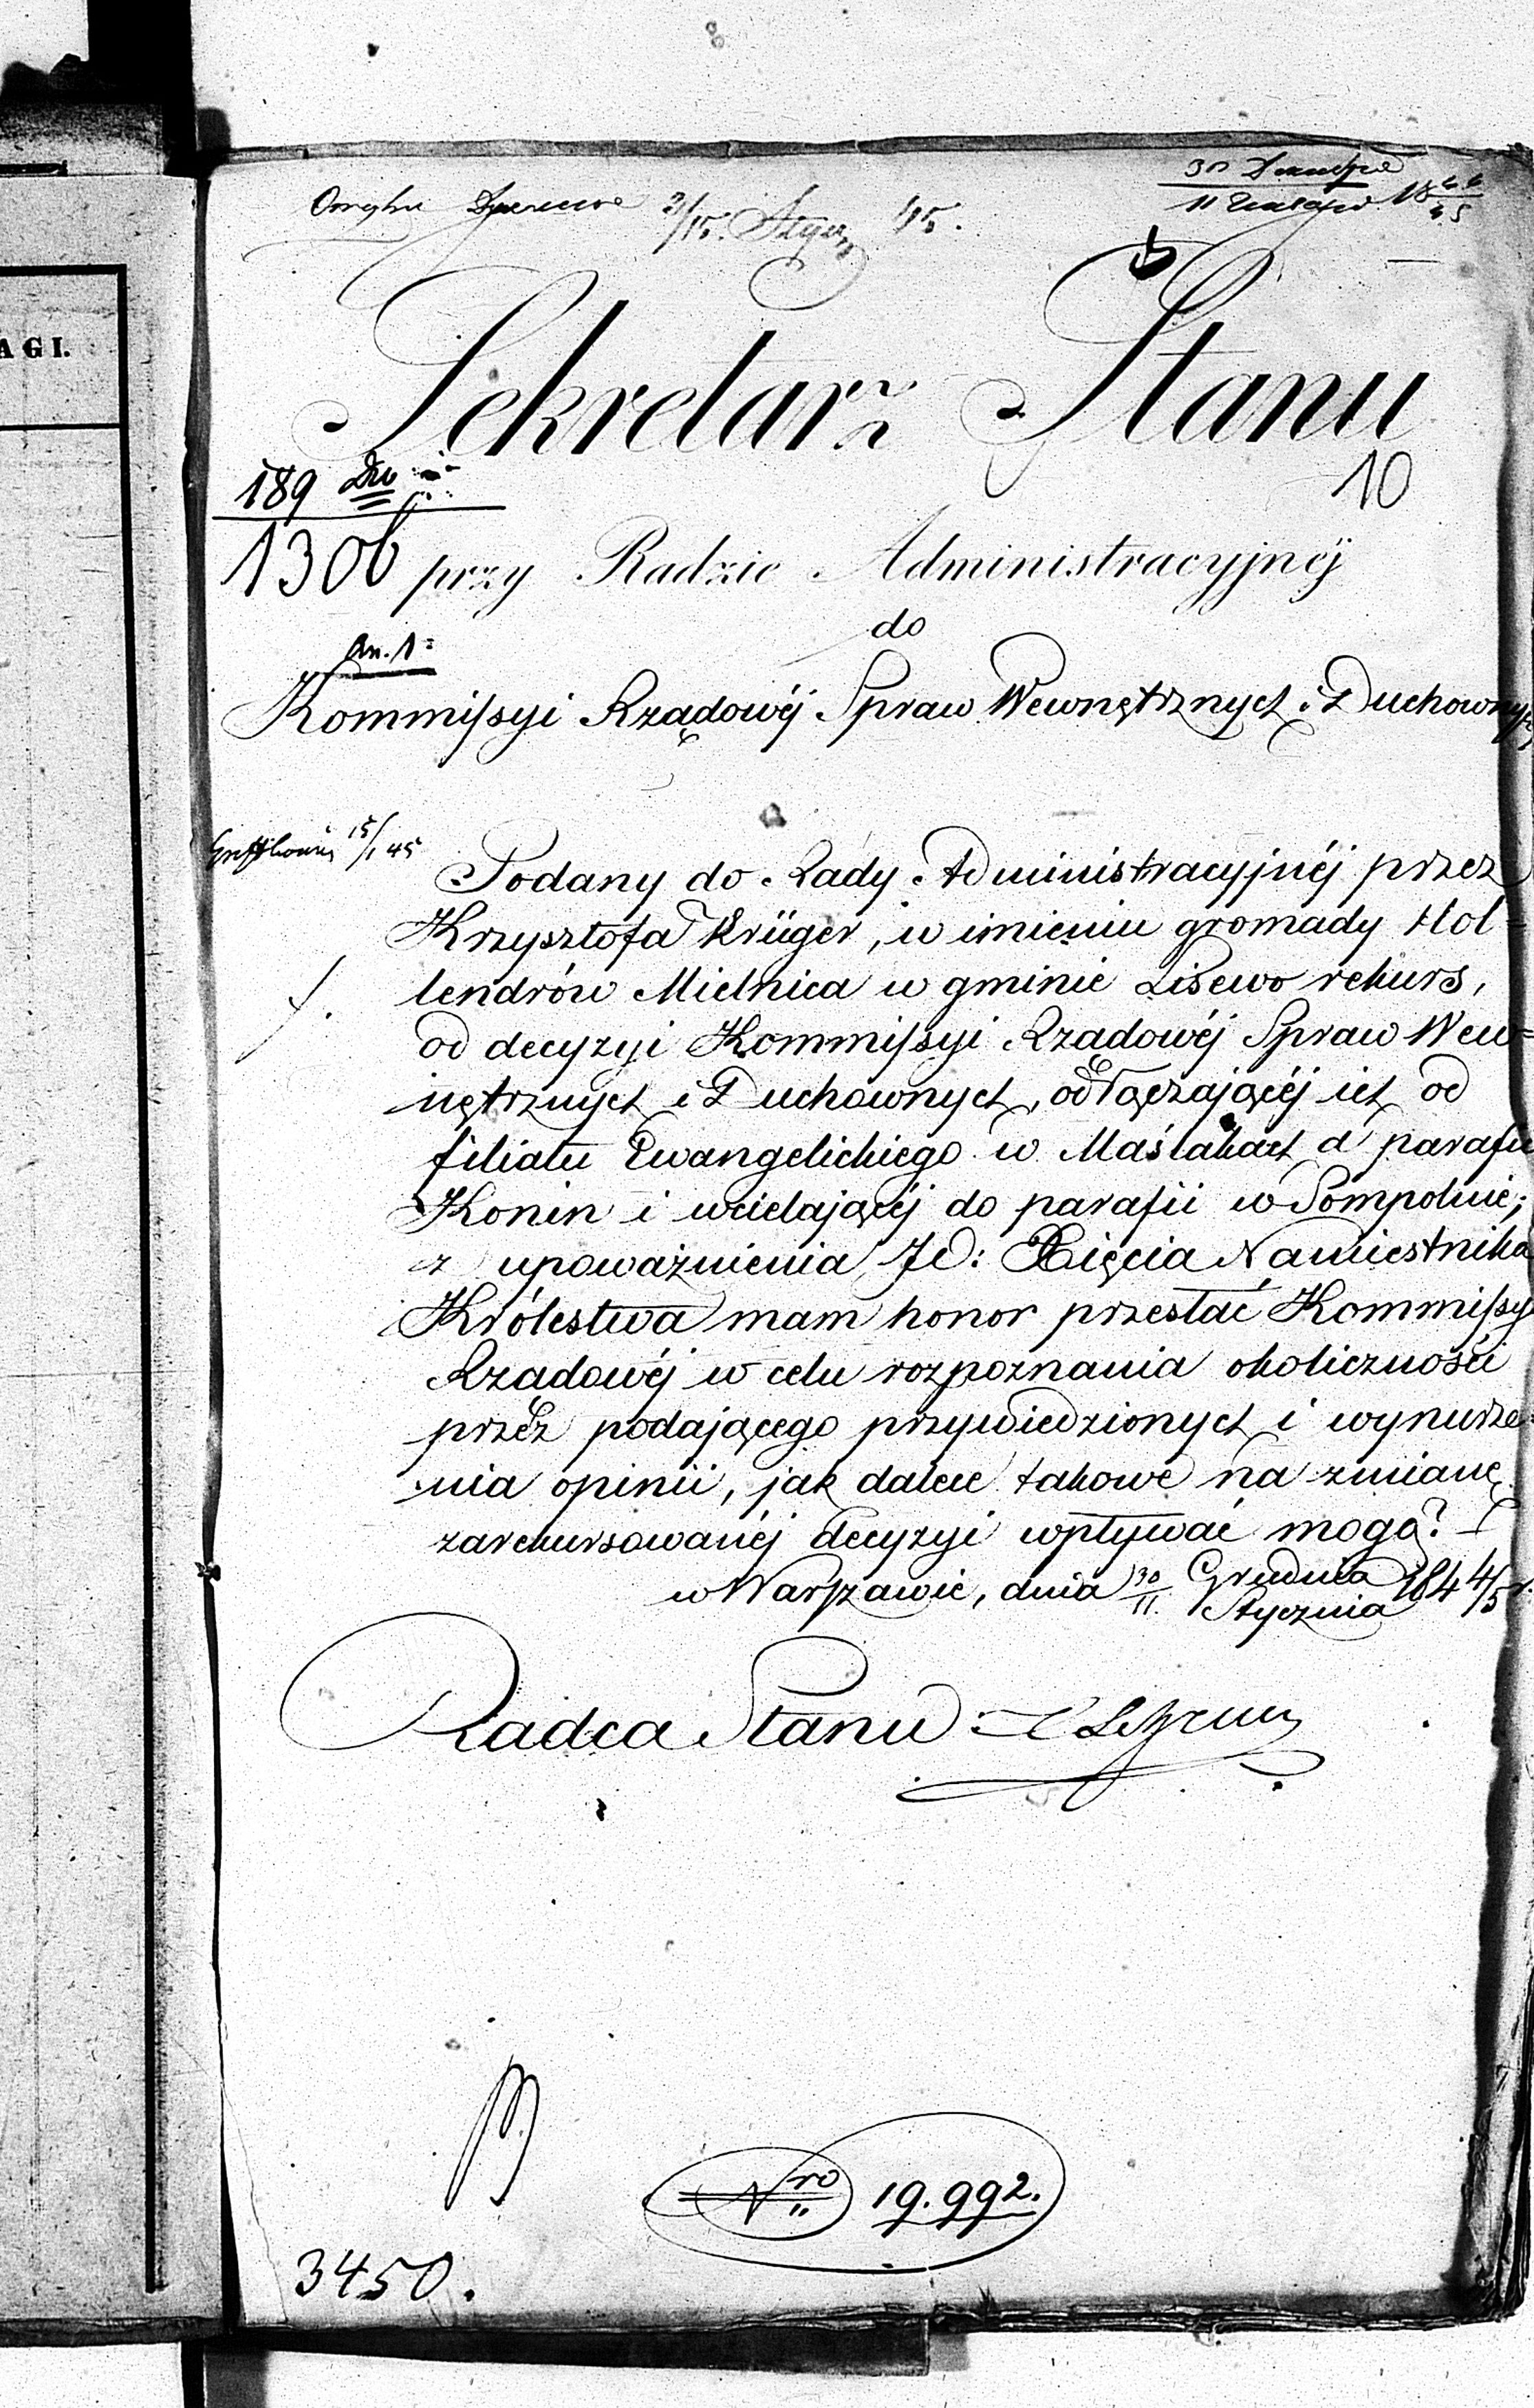 AGI.
2/15. Stycz. 45.
11 18 44/45
Sekretarz Stanu
189
10
1306 przy Radzie Administracyjnéj
An. 1
do
Kommissyi Rządowéj Spraw Wewnętrznych i Duchownych
15/1 45
Podany do Rady Administracyjnéj przez
Krzysztofa Krüger, w imieniu gromady Hol=
lendrów Mielnica w gminie Lisewo rekurs,
od decyzyi Kommissyi Rządowéj Spraw Wew=
nętrznych i Duchownych, odłączającéj ich od
filiału Ewangelickiego w Maślakach a parafii
Konin i wcielającéj do parafii w Sompolnie;
z upoważnienia JO: Xięcia Namiestnika
Królestwa mam honor przesłać Kommissyi
Rządowéj w celu rozpoznania okoliczności
przez podającego przywiedzionych i wynurze=
nia opinii, jak dalece takowe na zmianę
zarekursowanéj decyzyi wpływać mogą?
w Warszawie, dnia 30/11. Grudnia/Stycznia 184 4/5 r.
Radca Stanu
Nro 19.992.
3450.